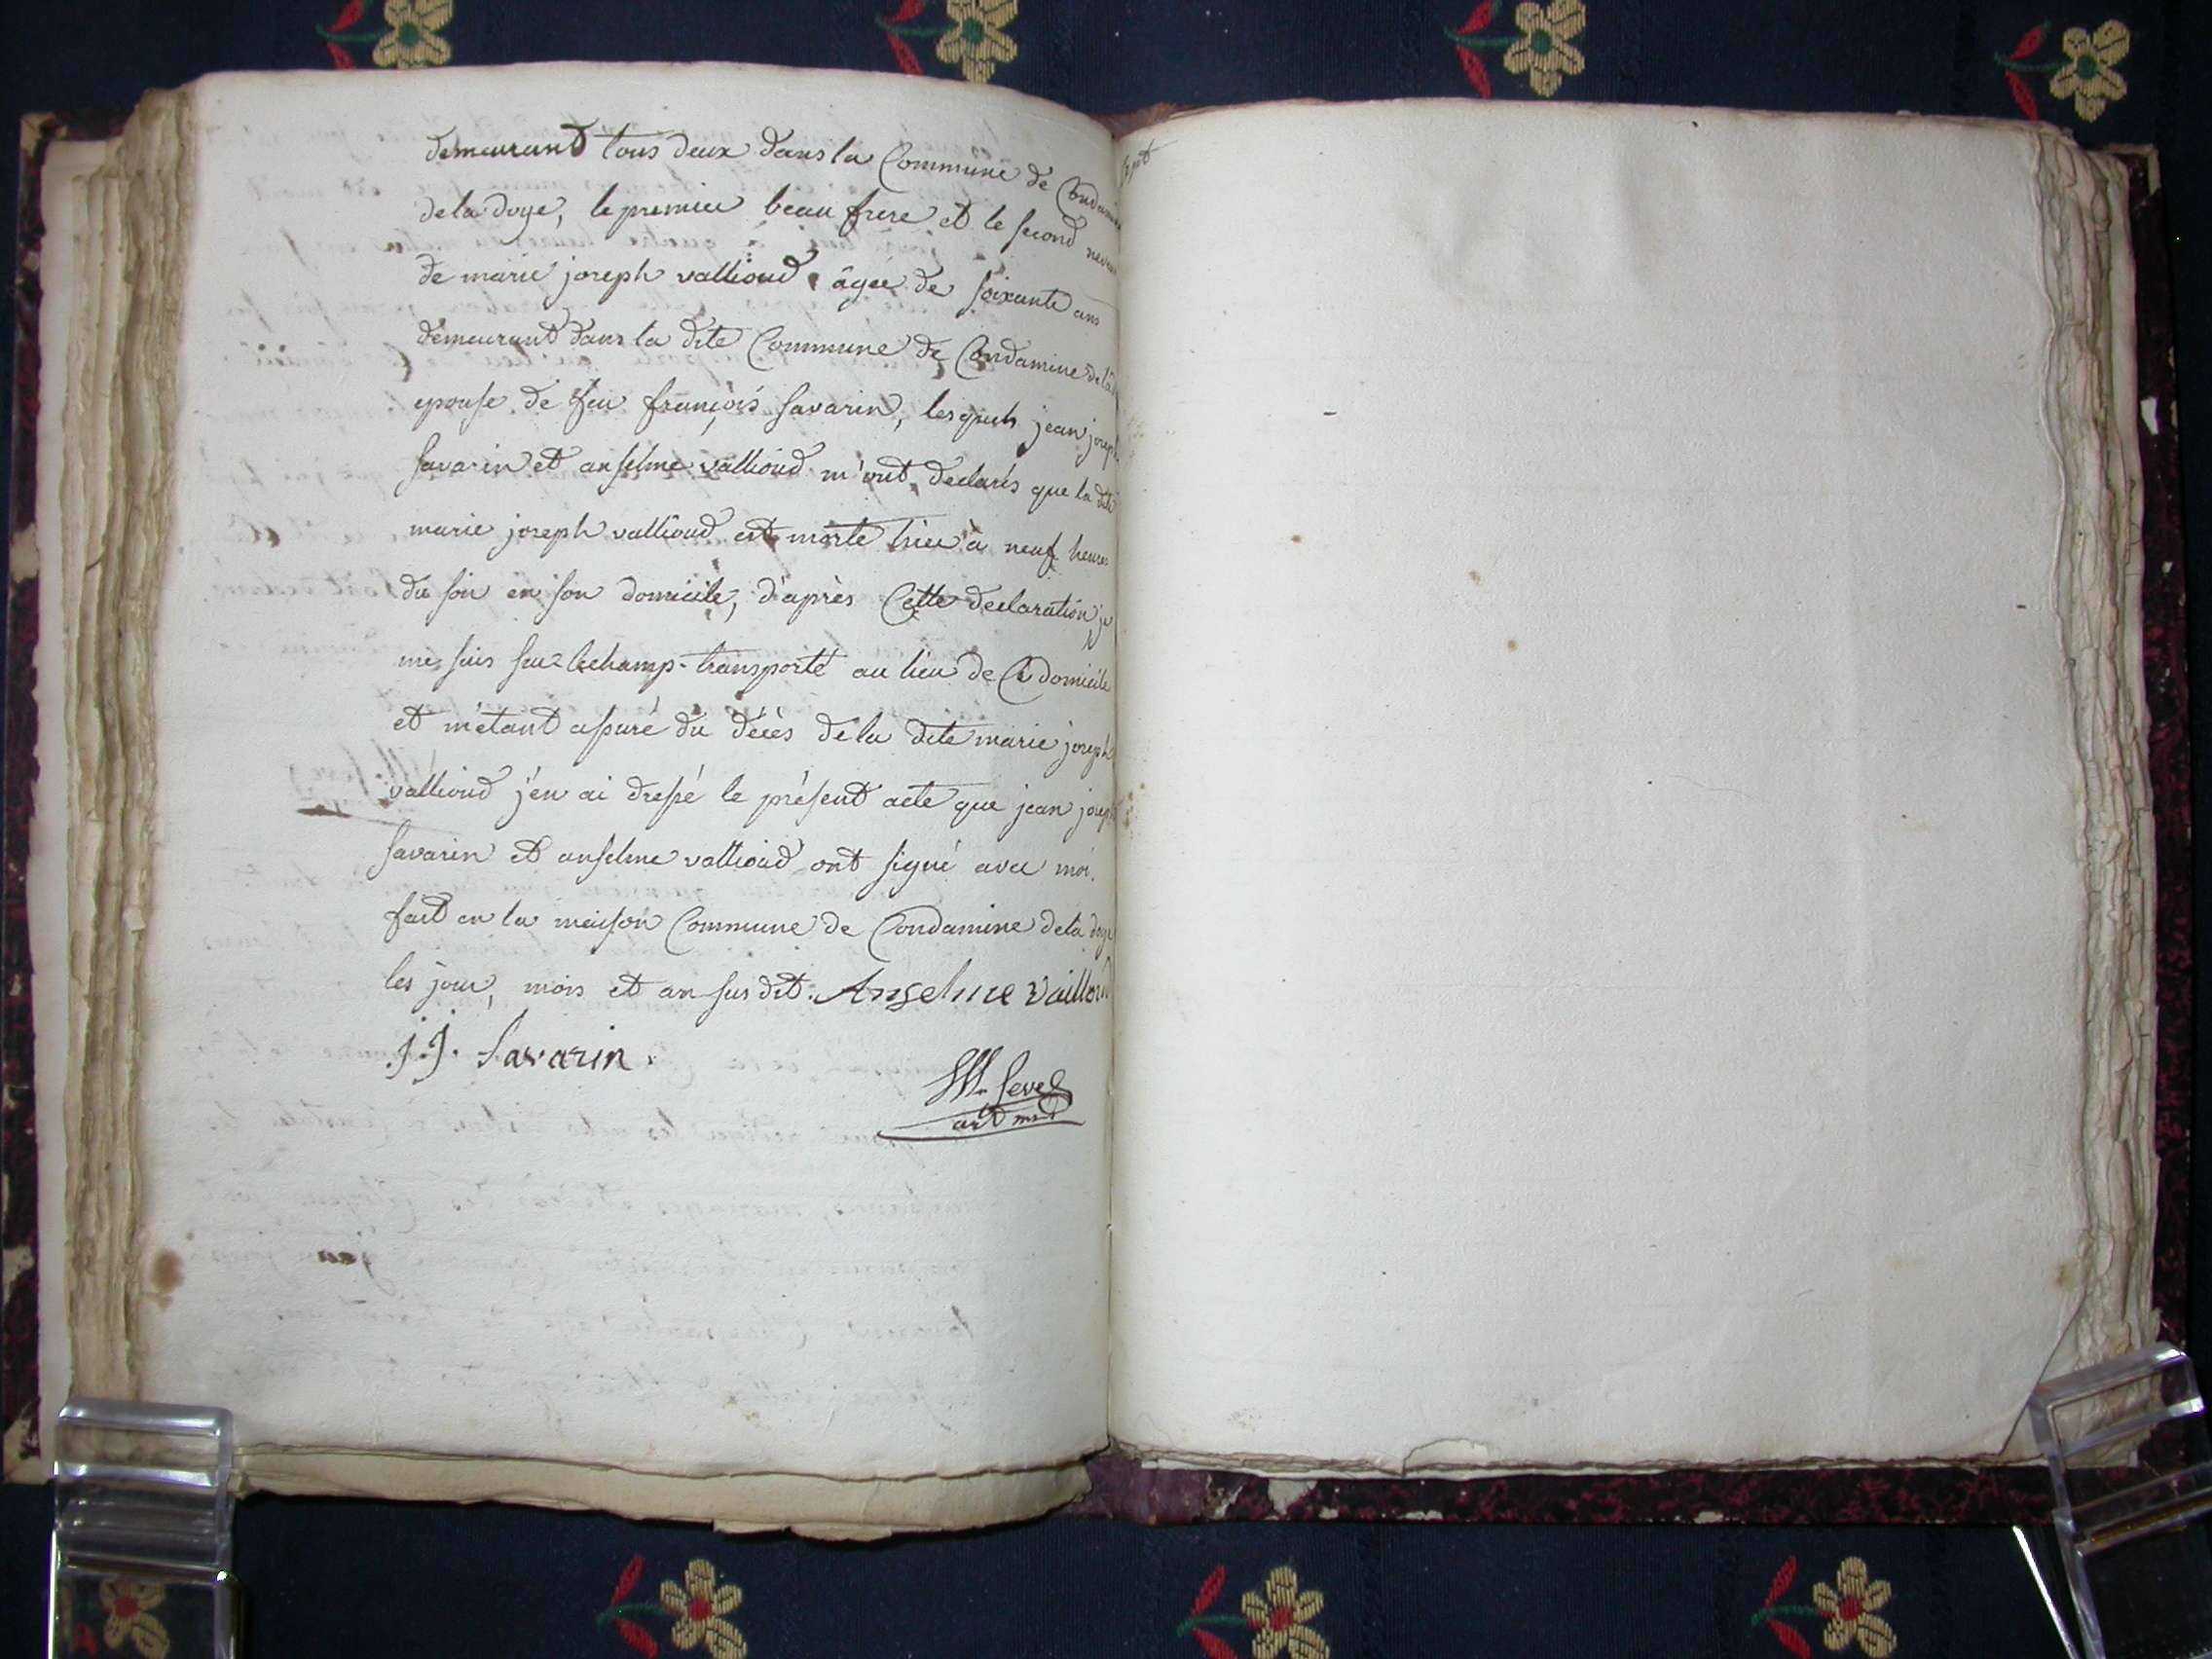 demeurant tous deux dans la Commune de Condamine
de la doye, le premier beau frere et le second neveu
de marie joseph vallioud âgée de soixante ans
demeurant dans la dite Commune de Condamine de la
epouse de feu françois savarin, lesquels jean joseph
savarin et anselme vallioud m'ont declarés que la dite
marie joseph vallioud est morte hier à neuf heures
du soir en son domicile, d'après Cette declaration je
me suis sur lechamp transporté au lieu de Ce domicile
et m'étant assuré du décès de la dite marie joseph
vallioud j'en ai dressé le présent acte que jean joseph
savarin et anselme vallioud ont signé avec moi.
fait en la maison Commune de Condamine de la doye
les jour, mois et an sus dit. Anselme Vailloud
J.J. Savarin.